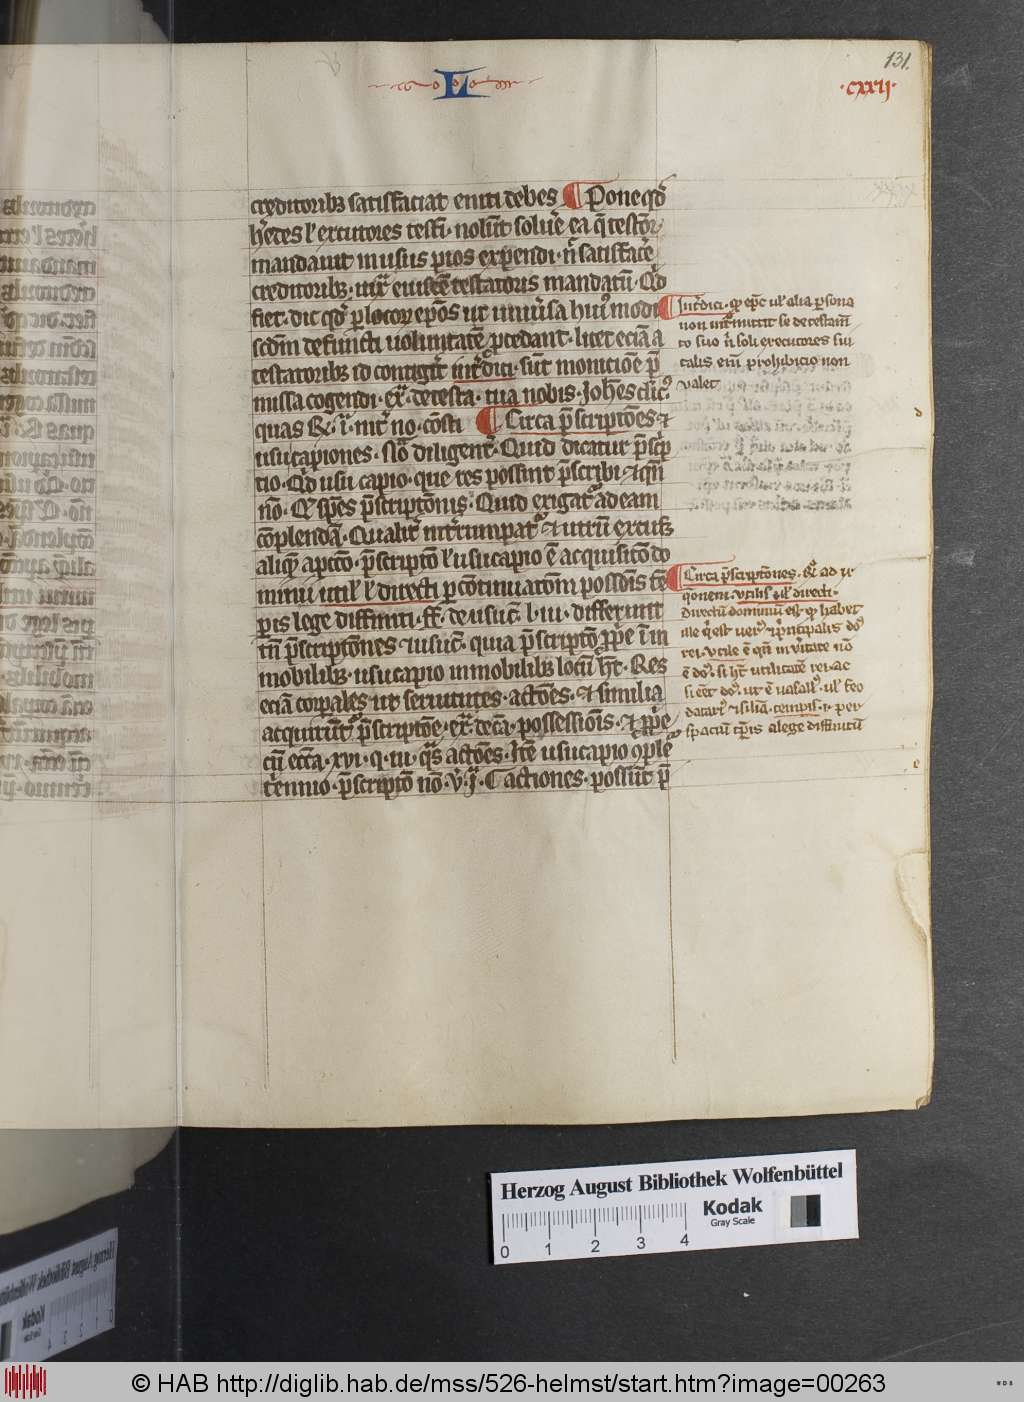 131.
·L·
·cxxij·
creditoribꝫ satisfaciat eniti debes ¶ Pone qđ
h̄edes ł executores testī· nolūt soluē ea q̄ testōr
mandauit in usus pios expendi· n̄ satisfacē
creditoribꝫ· iux̄ eiusdē testatoris mandatū· Qđ
fiet· dic qđ ꝑ locoꝝ ep̄os ut uniūsa huiꝰmodi
scdm̄ defuncti uolūtatē ꝓcedant· licet eciā a
testatoribꝫ id contigīt int̄dici· sūt monitiōe p̄
missa cogendi· ex̄· de testa· tua nobis· Joh̄es clic̄ꝰ
quas Rc̄· i· nīt no· cōsti ¶ Circa p̄scriptōes ⁊
usucapiones· sīo diligent̄· Quid dicatur p̄scͥp
tio· Qđ usucapio· que res possint p̄scribi ⁊ qn̄
nō· Et sp̄es p̄scriptōnis· Quid exigat᷑ ad eam
cōplendā· Qualit̄ int̄rumpat᷑ ⁊ utrū excusꝫ
p̄scriptō ł usucapio ē acquisitō do
minij util̄ ł directi ꝑ cōtinuatōm possōis tē
ꝑis lege diffiniti· ff̄· de usuc̄· l· iii· differunt
tn̄ p̄scriptōnes ⁊ usuc̄· quia p̄scriptō ꝓp̄e ī in
mobilibꝫ· usucapio in mobilibꝫ locū h̄t· Res
eciā corpales ut seruitutes· actōes· ⁊ similia
acquirūt᷑ p̄scriptōe· ex̄· de cā· possessiōis· ⁊ ꝓp̄e
cū ecc̄a· xvi· q· iii· q̄s actōes· Itē usucapio ꝯplē
t̄ennio· p̄scriptō nō· v̄· J· C· actiones· possūt p̄
¶ Int̄dici· ꝙ ep̄c uł alia ꝑsona
non int̄mittit se de testam̄
to suo n̄ soli executores sui
talis eniī prohibicio non
valet
¶ Circa p̄scriptōnes· Rͦ ad ꝛ
qonem· vtilis· uł directi·
directū dominiū est ꝙ habet
ille q̄ est ver᷑ ⁊ p̄ncipalis dōꝰ
rei· vtile ē qn̄ in v̄itate nō
ē dōꝰ· s̄i h̄t utilitatē rei· ac
si eēt dōꝰ· ut ē vasall᷑ꝰ· uł feo
datariꝰ ⁊ siliā· tempis· i· per
spaciū tꝑis a lege diffinitū
d
e
Herzog August Bibliothek Wolfenbüttel
Kodak
Gray Scale
0 1 2 3 4
© HAB http://diglib.hab.de/mss/526-helmst/start.htm?image=00263